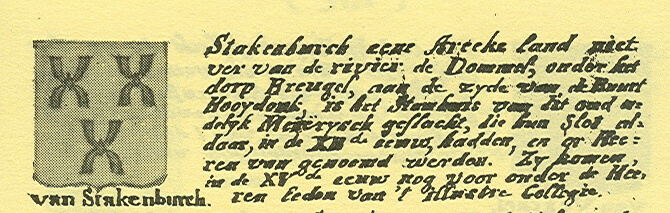 Stakenburch eene streeke land niet
ver van de rivier de Dommel, onder het
dorp Breugel, aan de zyde van de Buurt
Hooydonk, is het Stamhuis van dit oud
delyk Meyerysch geslacht, die hun Slot al-
daar, in de eeuw, hadden, en er Hee-
ren van genoemd werden. Zy komen,
in de XV.de eeuw nog voor onder de Hee-
ren Leden van 't illustre Collegie.
van Stakenburch.